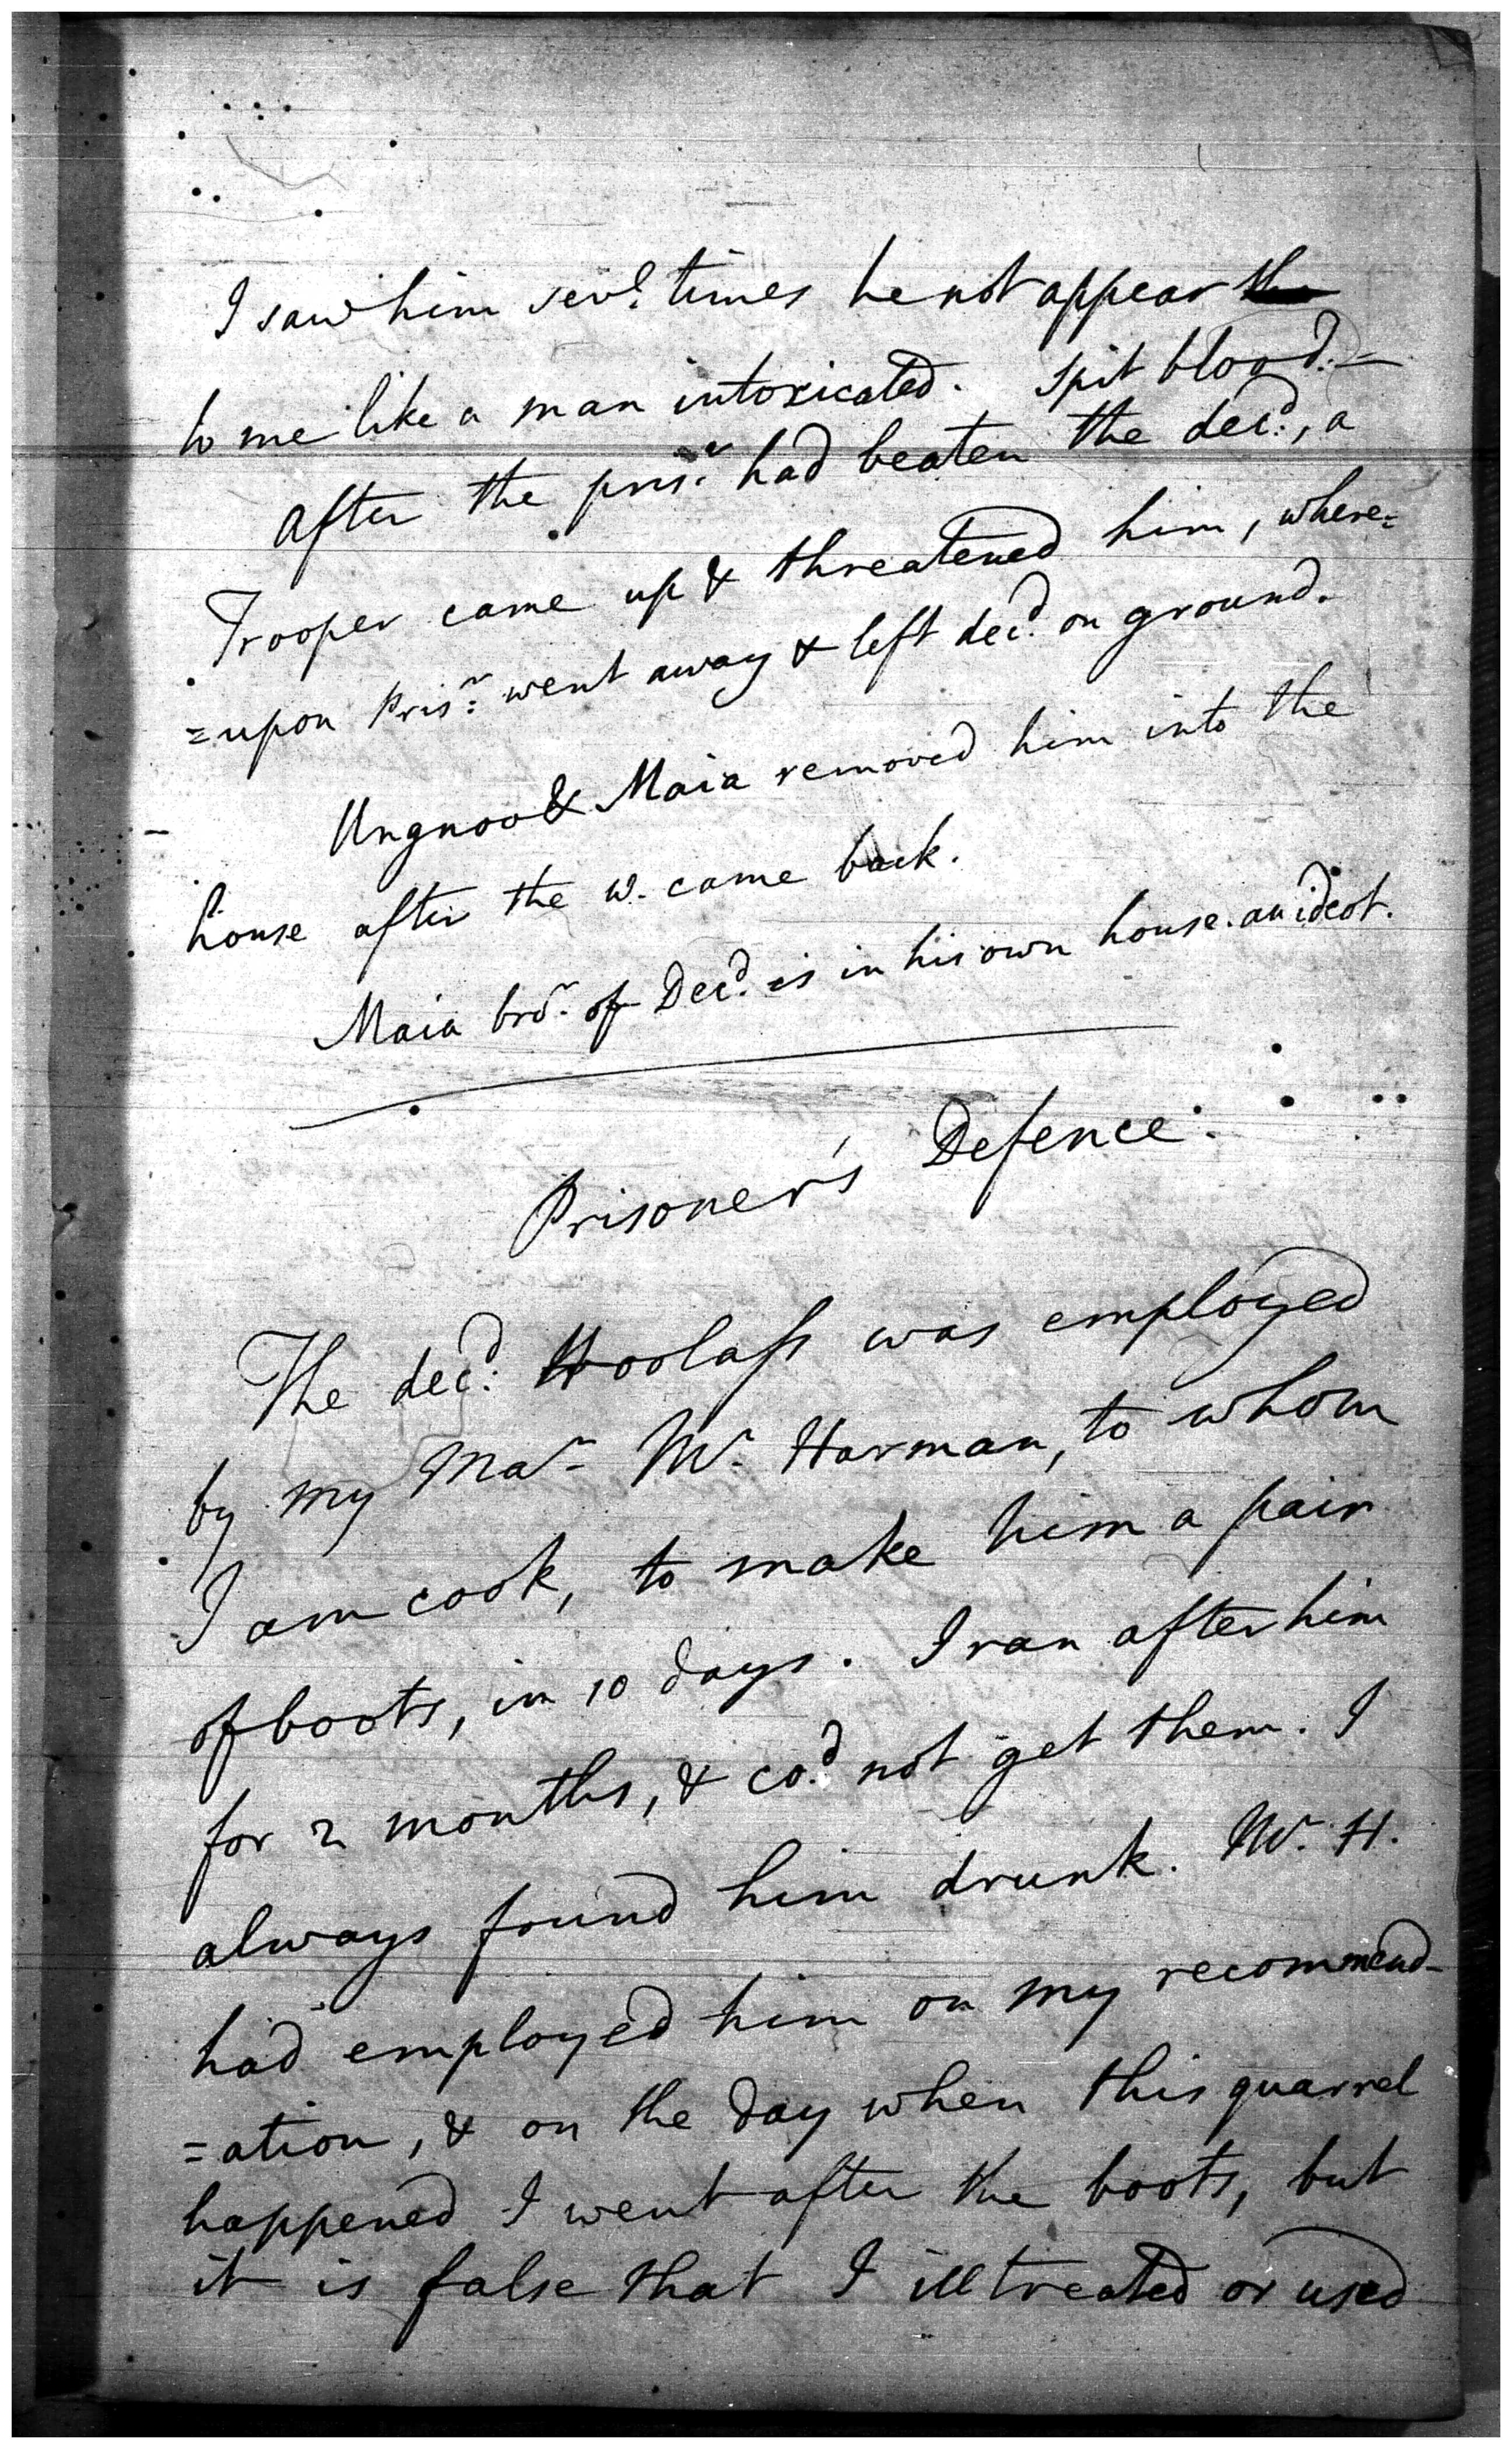 I saw him sevl. times he not appear
to me like a man intoxicated. Spit blood. —
After the prisr. had beaten the decd., a
Trooper came up & threatened him, where=
=upon Prisr. went away & left decd. on ground.
Ungnoo & Maia removed him into the
house after the w. came back.
Maia bror. of Decd. is in his own house. an ideot.
Prisoner's Defence.
The decd. Hoolass was employed
by my Mar. Mr. Harman, to whom
I am cook, to make him a pair
of boots, in 10 days. I ran after him
for 2 months, & cod. not get them. I
always found him drunk. Mr. H.
had employed him on my recommend-
=ation, & on the day when this quarrel
happened I went after the boots, but
it is false that I ill treated or used